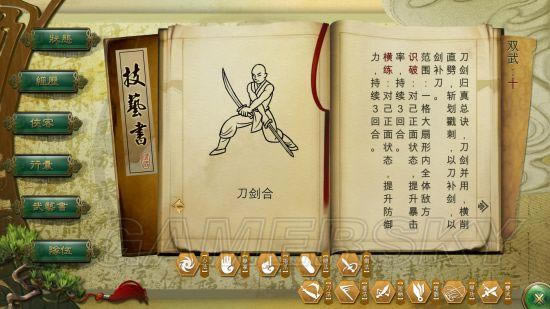 狀態
經歷
俠客
行囊
武藝書
隊伍
技藝書
刀剑合
双武：十
刀剑归真总诀，刀剑并用，横削
直劈，斩划戳刺，以刀补剑，以
剑补刀。
范围：一格大扇形内全体敌方
识破：对己正面状态，提升暴击
率，持续3回合。
横练：对己正面状态，提升防御
力，持续3回合。
GAMERSKY